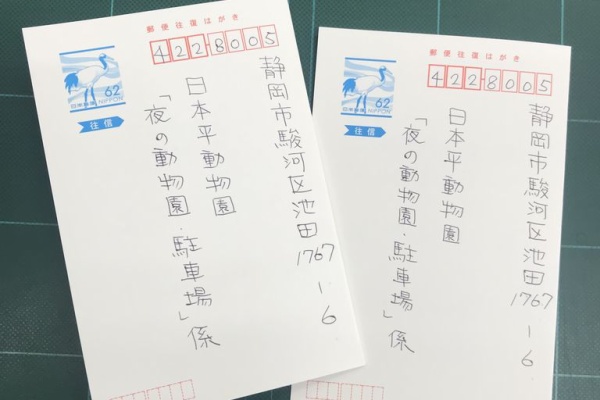 郵便往復はがき
422-8005
62
日本郵便 NIPPON
往信
静岡市駿河区池田1767-6
日本平動物園
「夜の動物園・駐車場」係
郵便往復はがき
422-8005
62
日本郵便 NIPPON
往信
静岡市駿河区池田1767-6
日本平動物園
「夜の動物園・駐車場」係